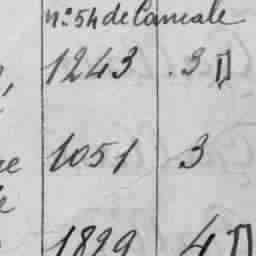 n.º 54 de Cancale
1243 . 3 D
1051 3
1829 4 D